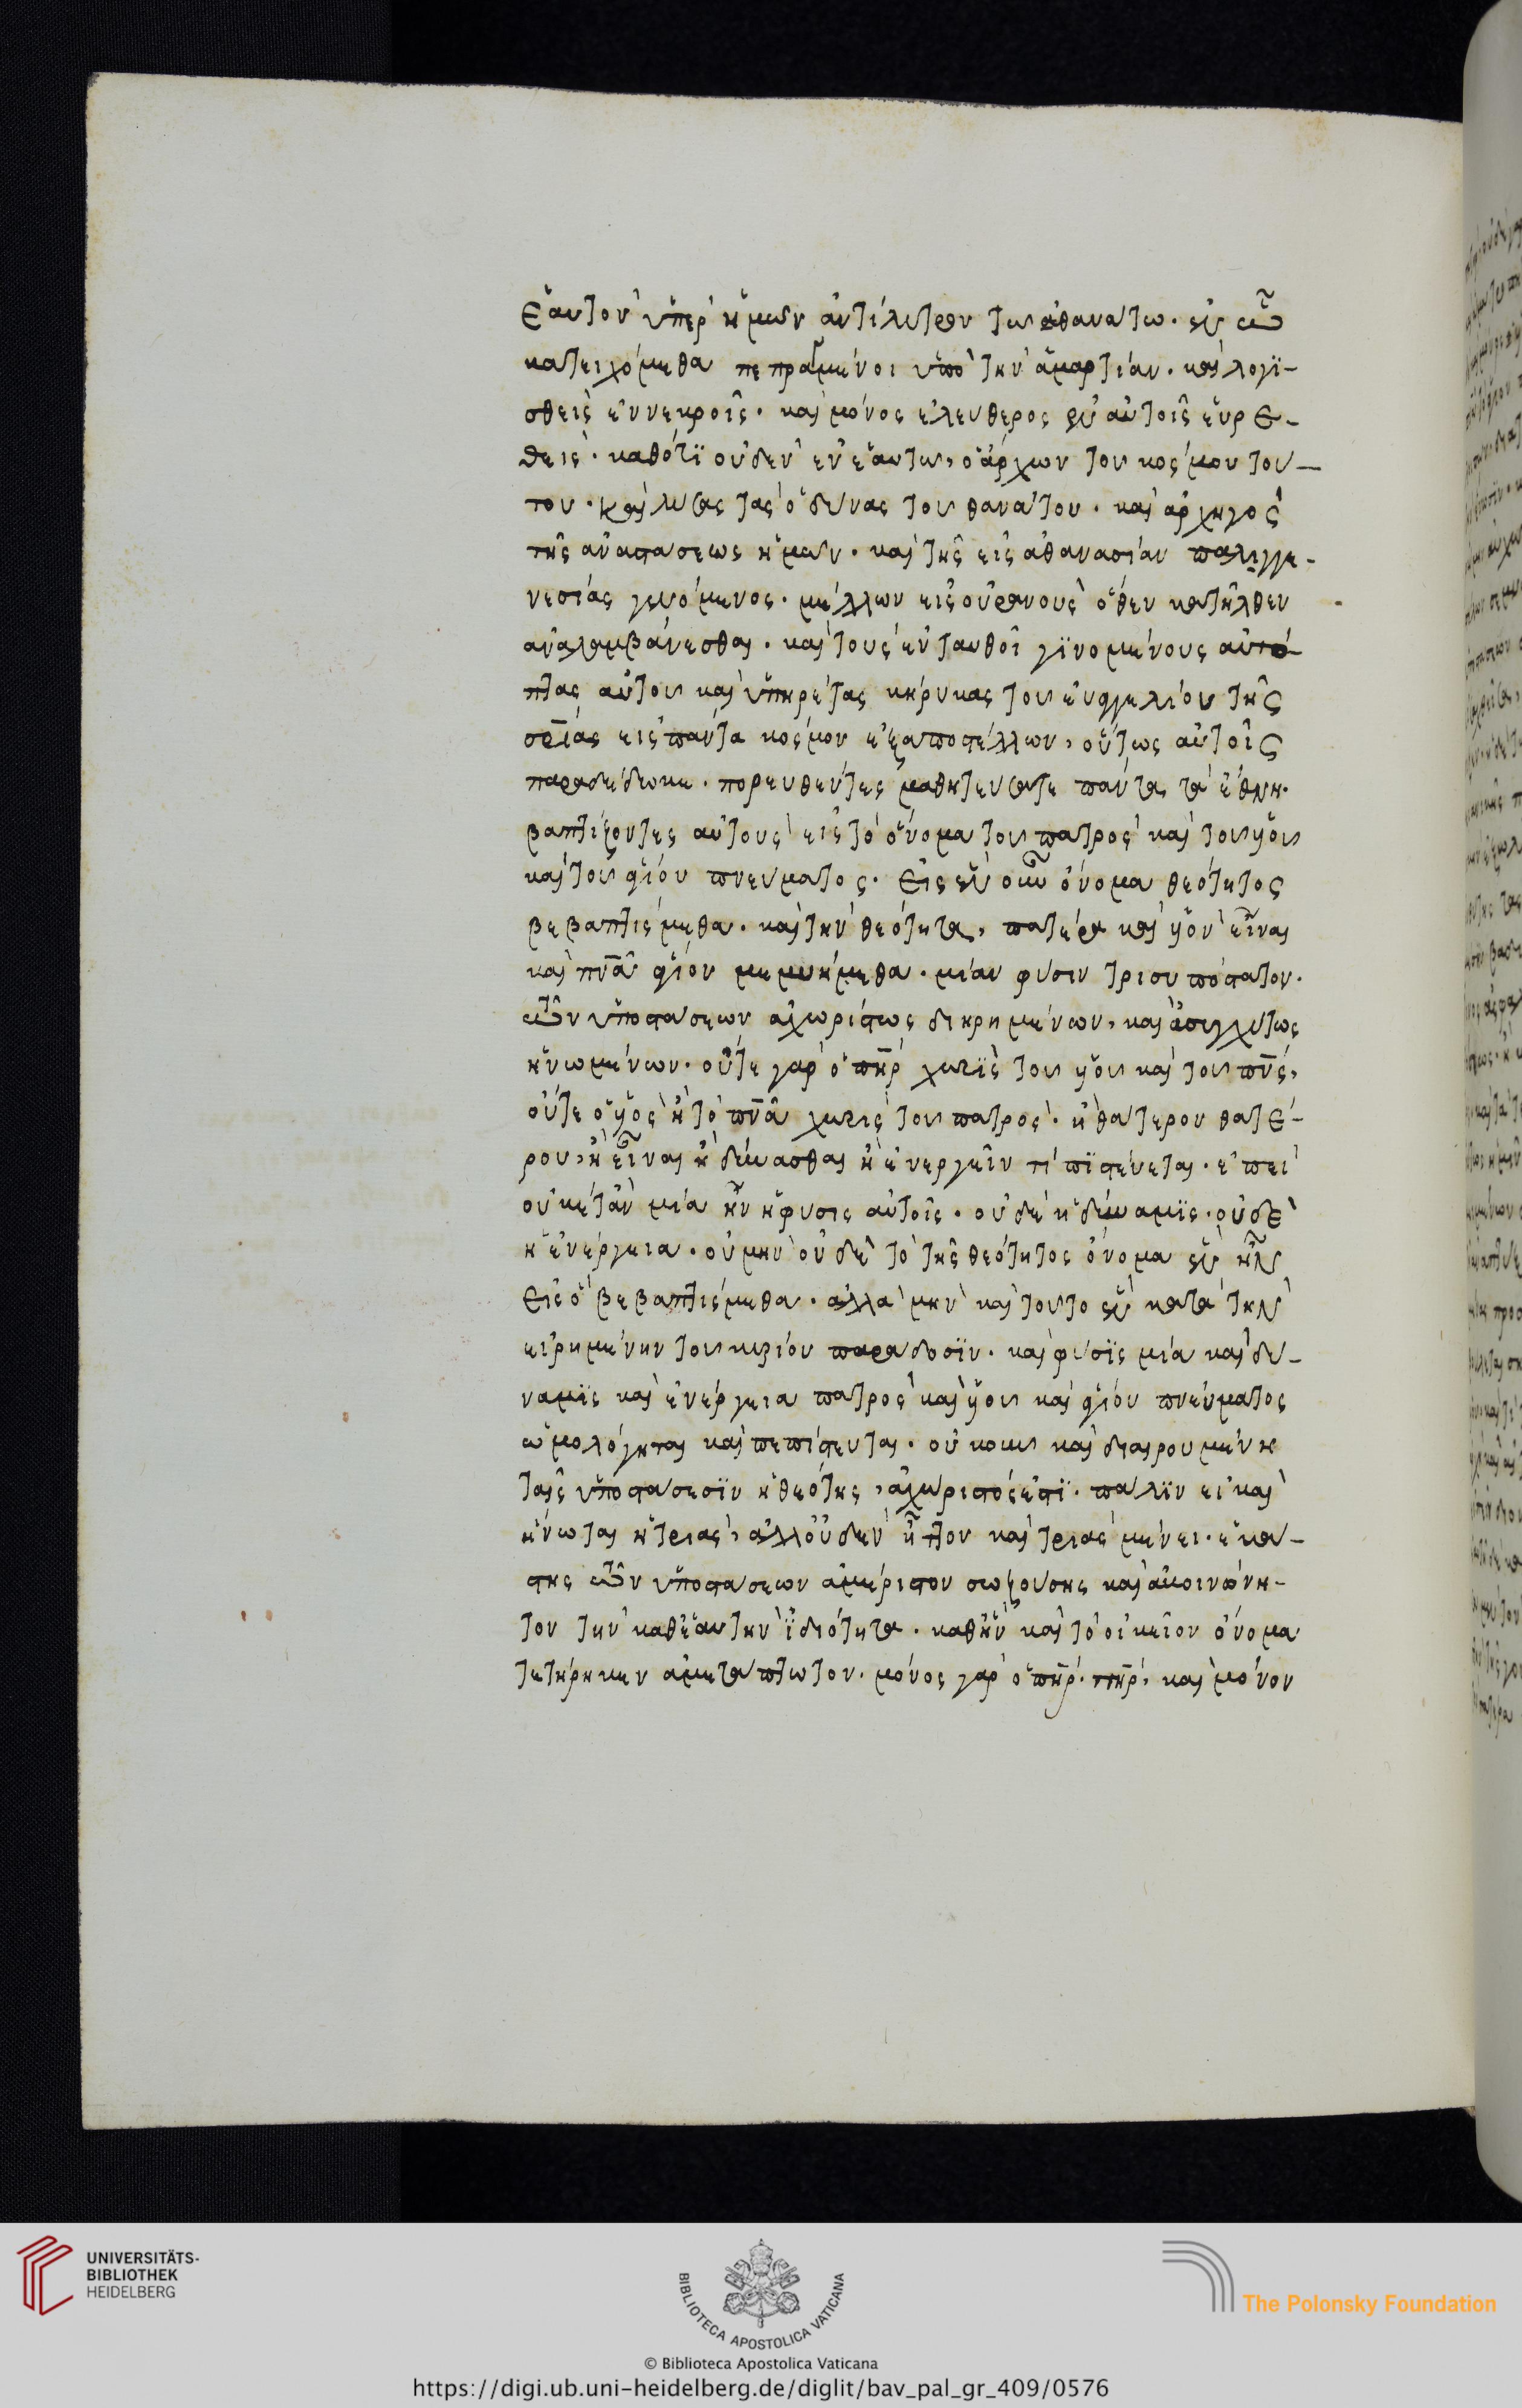 ἑαυτὸν ὑπὲρ ἡμῶν ἀντίλυτρον τῶ θανάτω. ἐν ὧ
κατειχόμεθα πεπραμένοι ὑπὸ τὴν ἁμαρτίαν. καὶ λογϊ-
σθεὶς ἐν νεκροῖς. καὶ μόνος ἐλεύθερος ἐν αὐτοῖς εὑρε-
θεὶς. καθότϊ οὐδὲν ἐν ἑαυτῶ, ὁ ἄρχων τοῦ κόσμου τού-
του. καὶ λύσας τὰς ὀδύνας τοῦ θανάτου. καὶ ἀρχηγὸς
τῆς ἀναστάσεως ἡμῶν. καὶ τῆς εἰς ἀθανασίαν παλιγγε-
νεσίας γενόμενος. μέλλων εἰς οὐρανοὺς ὅθεν κατῆλθεν
ἀναλαμβάνεσθαι. καὶ τοὺς ἐνταυθοῖ γϊνομένους αὐτό-
πτας αὐτοῦ καὶ ὑπηρέτας κήρυκας τοῦ εὐαγγελίου τῆς
σρίας εἰς πάντα κόσμον ἐξαποστέλλων, οὕτως αὐτοῖς
παραδέδωκε. πορευθέντες μαθητεύσατε πάντα τὰ ἔθνη.
βαπτίζοντες αὐτοὺς εἰς τὸ ὄνομα τοῦ πατρὸς καὶ τοῦ υἱοῦ
καὶ τοῦ ἁγίου πνεύματος. Εἰς ἓν οὖν ὄνομα θεότητος
βεβαπτίσμεθα. καὶ τὴν θεότητα, πατέρα καὶ υἱὸν εἶναι
καὶ πνα ἅγιον μεμυήμεθα. μίαν φύσιν τρισυπόστατον.
τῶν ὑποστάσεων ἀχωρίστως διηρημένων, καὶ ἀσυγχύτως
ἡνωμένων. οὔτε γὰρ ὁ πηρ χωρϊς τοῦ υἱοῦ καὶ τοῦ πνς,
οὔτε ὁ υἱὸς ἢ τὸ πνα χωρὶς τοῦ πατρὸς. ἢ θάτερον θατέ-
ρου, ἢ εἶναι ἢ δύνασθαι ἢ ἐνεργεῖν τί πϊστεύεται. ἐπεὶ
οὐκέτ ἂν μία ἦν ἡ φύσις αὐτοῖς. οὐδὲ ἡ δύναμϊς. οὐδὲ
ἡ ἐνέργεια. οὐ μὴν οὐδὲ τὸ τῆς θεότητος ὄνομα ἓν ἦν
εἰς ὃ βεβαπτίσμεθα. ἀλλὰ μὴν καὶ τοῦτο ἓν κατὰ τὴν
εἰρημένην τοῦ κυρίου παράδοσϊν. καὶ φύσϊς μία καὶ δύ-
ναμϊς καὶ ἐνέργεια πατρὸς καὶ υἱοῦ καὶ ἁγίου πνεύματος
ὡμολόγηται καὶ πεπίστευται. οὐκοῦν καὶ διαιρουμένη
ταῖς ὑποστάσεσϊν ἡ θεότης, ἀχώριστός ἐστϊ. πάλϊν εἰ καὶ
ἥνωται ἡ τριὰς, ἀλλ οὐδὲν ἧττον καὶ τριὰς μένει. ἑκά-
στης τῶν ὑποστάσεων ἀμέριστον σωζούσης καὶ ἀκοινώνη-
τον τὴν καθ ἑαυτὴν ἰδιότητα. καθ ἣν καὶ τὸ οἰκεῖον ὄνομα
τετήρηκεν ἀμετάπτωτον. μόνος γὰρ ὁ πηρ. πηρ, καὶ μόνον
UNIVERSITÄTS-
BIBLIOTHEK
HEIDELBERG
BIBLIOTECA APOSTOLICA VATICANA
The Polonsky Foundation
© Biblioteca Apostolica Vaticana
https://digi.ub.uni-heidelberg.de/diglit/bav_pal_gr_409/0576